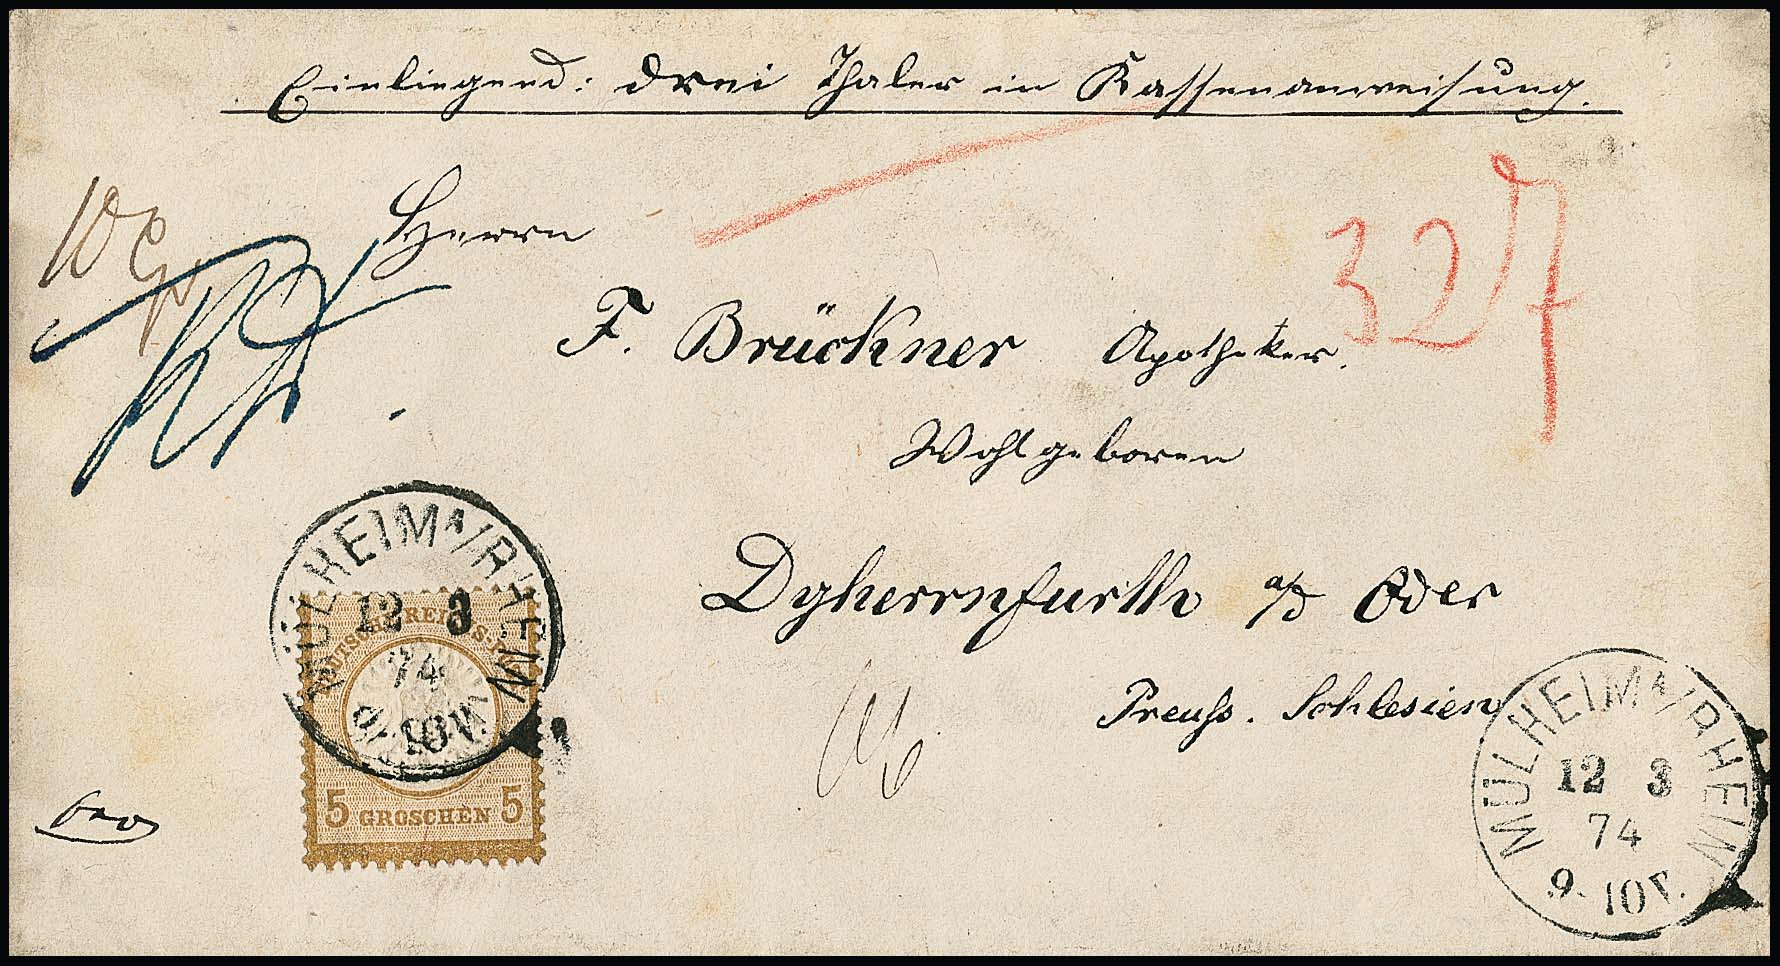 Einliegend: drei Thaler in Kassenanweisung.
Herrn
327
F. Brückner Apotheker.
Wohlgeboren
MÜLHEIM A/RHEIN
12 3
74
9-10V.
DEUTSCHE REICHS-POST
5 GROSCHEN 5
Dyhernfurth a/d Oder
Preuß. Schlesien
MÜLHEIM A/RHEIN
12 3
74
9-10V.